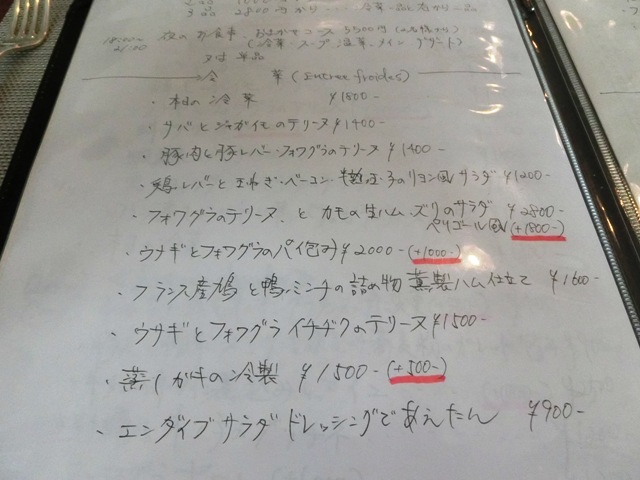 3品 2800円
18:00〜 夜のお食事、おまかせコース 5500円
21:00 (冷菜、スープ、温菜、メイン、デザート)
又は単品
冷 菜 (Entree froides)
・本日の冷菜 ¥1800-
・サバとジャガイモのテリーヌ ¥1400-
・豚肉と豚レバー・フォワグラのテリーヌ ¥1400-
・鶏レバーと玉ねぎ・ベーコン・半熟玉子のリヨン風サラダ ¥1200-
・フォワグラのテリーヌ と カモの生ハム、ズリのサラダ ¥2800-
ペリゴール風 (+1800-)
・ウナギとフォワグラのパイ包み ¥2000- (+1000-)
・フランス産鳩と鴨ミンチの詰め物 薫製ハム仕立て ¥1600-
・ウサギとフォワグラ イチヂクのテリーヌ ¥1500-
・蒸しガキの冷製 ¥1500- (+500-)
・エンダイブサラダ ドレッシングであえたん ¥900-